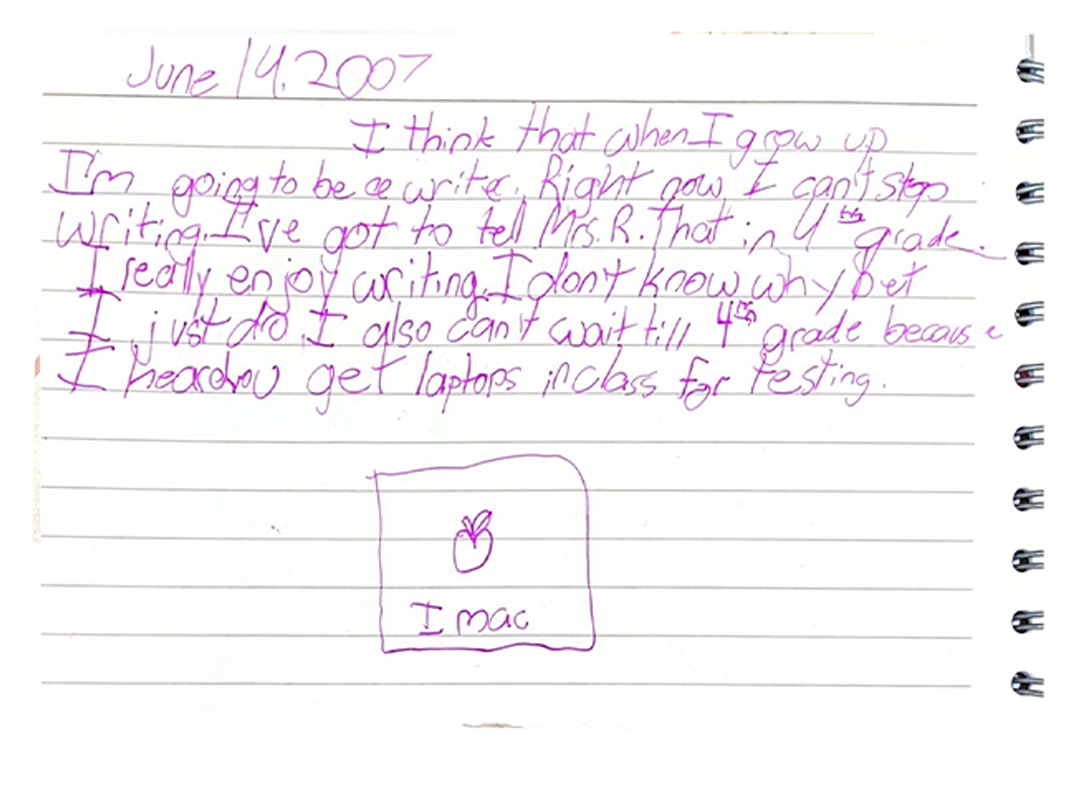 June 14, 2007
I think that when I grow up
I'm going to be a writer. Right now I can't stop
writing. I've got to tell Mrs. R. That in 4th grade.
I really enjoy writing. I don't know why bet
I just do. I also can't wait till 4th grade because
I heard you get laptops in class for testing.
I mac